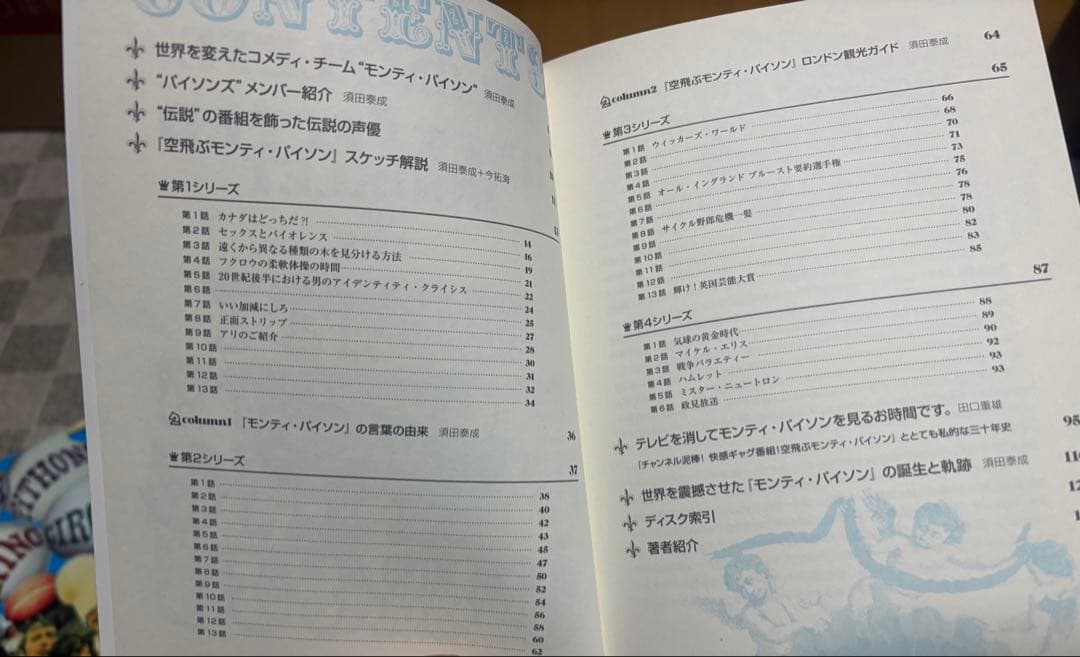 CONTENTS
世界を変えたコメディ・チーム“モンティ・パイソン” 須田泰成
“パイソンズ”メンバー紹介 須田泰成
“伝説”の番組を飾った伝説の声優
『空飛ぶモンティ・パイソン』スケッチ解説 須田泰成+今拓海
第1シリーズ
第1話 カナダはどっちだ?! 14
第2話 セックスとバイオレンス 16
第3話 遠くから異なる種類の木を見分ける方法 19
第4話 フクロウの柔軟体操の時間 21
第5話 20世紀後半における男のアイデンティティ・クライシス 22
第6話 24
第7話 いい加減にしろ 25
第8話 正面ストリップ 27
第9話 アリのご紹介 28
第10話 30
第11話 31
第12話 32
第13話 34
column1 『モンティ・パイソン』の言葉の由来 須田泰成 36
第2シリーズ 37
第1話 38
第2話 40
第3話 42
第4話 43
第5話 45
第6話 47
第7話 50
第8話 52
第9話 54
第10話 56
第11話 58
第12話 60
第13話 62
column2 『空飛ぶモンティ・パイソン』ロンドン観光ガイド 須田泰成 64
第3シリーズ 65
第1話 ウィッカーズ・ワールド 66
第2話 68
第3話 70
第4話 71
第5話 オール・イングランド プルースト要約選手権 73
第6話 75
第7話 76
第8話 サイクル野郎危機一髪 78
第9話 78
第10話 80
第11話 82
第12話 83
第13話 輝け!英国芸能大賞 85
第4シリーズ 87
第1話 気球の黄金時代 88
第2話 マイケル・エリス 89
第3話 戦争バラエティー 90
第4話 ハムレット 92
第5話 ミスター・ニュートロン 93
第6話 政見放送 93
テレビを消してモンティ・パイソンを見るお時間です。 田口重雄 95
『チャンネル泥棒!快感ギャグ番組!空飛ぶモンティ・パイソン』ととても私的な三十年史
世界を震撼させた『モンティ・パイソン』の誕生と軌跡 須田泰成
ディスク索引
著者紹介